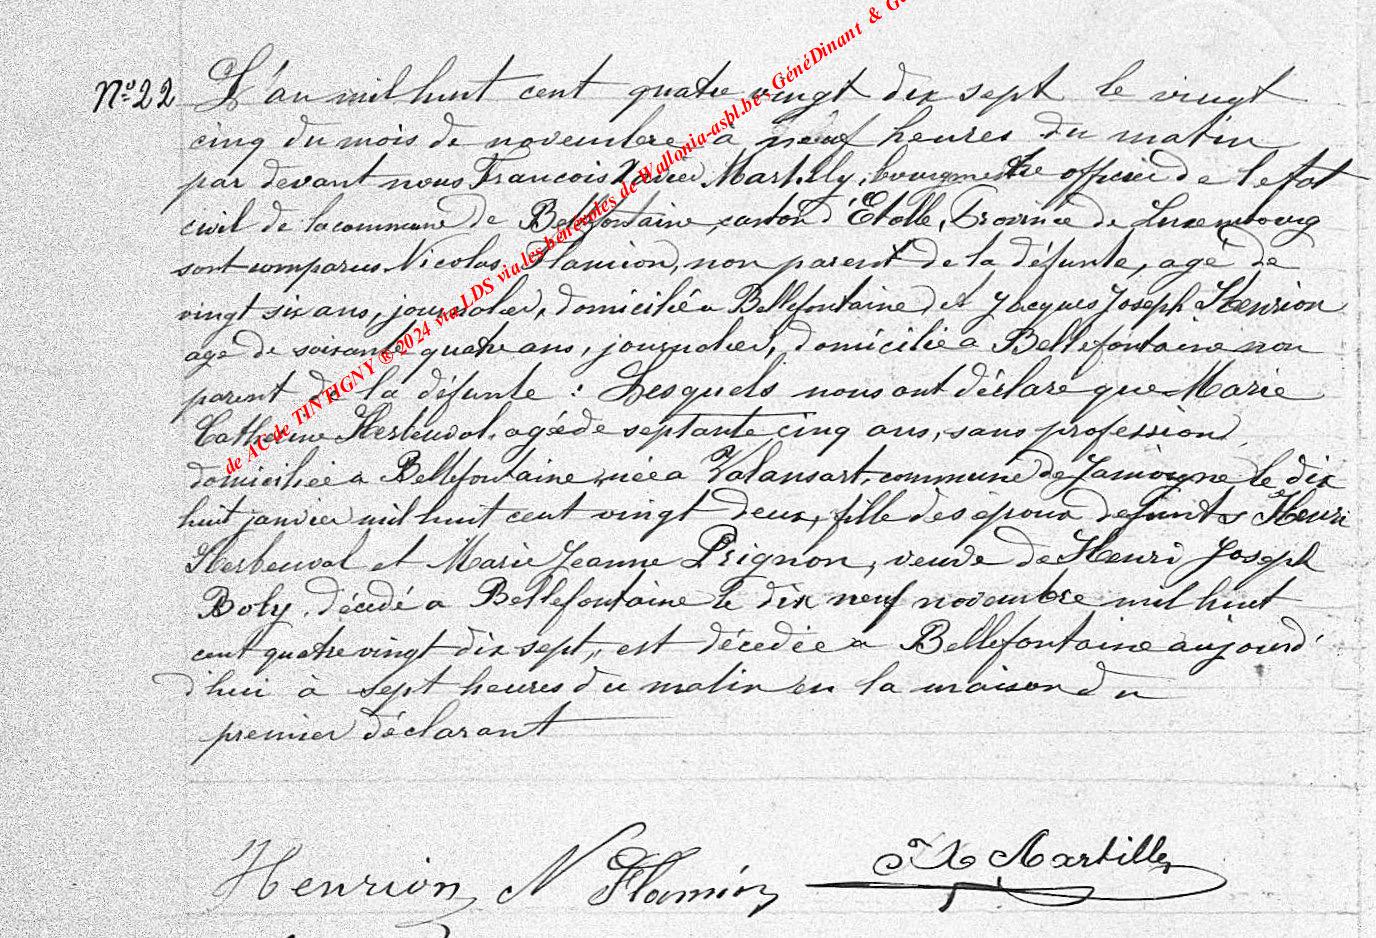 N° 22 L'an mil huit cent quatre vingt dix sept le vingt
cinq du mois de novembre à neuf heures du matin
par devant nous Francois Xavier Martilly, bourgmestre officier de l'etat
civil de la commune de Bellefontaine, canton d'Etalle, Province de Luxembourg
sont comparus Nicolas Flamion, non parent de la défunte, agé de
vingt six ans, journalier, domicilié a Bellefontaine et Jacques Joseph Henrion
agé de soixante quatre ans, journalier, domicilié a Bellefontaine non
parent de la défunte : Lesquels nous ont déclaré que Marie
Catherine Herbeuval, agée de septante cinq ans, sans profession,
domiciliée a Bellefontaine, née a Valansart, commune de Jamoigne le dix
huit janvier mil huit cent vingt deux, fille des époux défunts Henri
Herbeuval et Marie Jeanne Prignon, veuve de Henri Joseph
Boly, décédé a Bellefontaine le dix neuf novembre mil huit
cent quatre vingt dix sept, est décédée a Bellefontaine aujourd'
d'hui à sept heures du matin en la maison du
premier déclarant
Henrion N Flamion FX Martilly
de AC de TINTIGNY ® 2024 via LDS via les bénévoles de Wallonia-asbl.be - GénéDinant & G